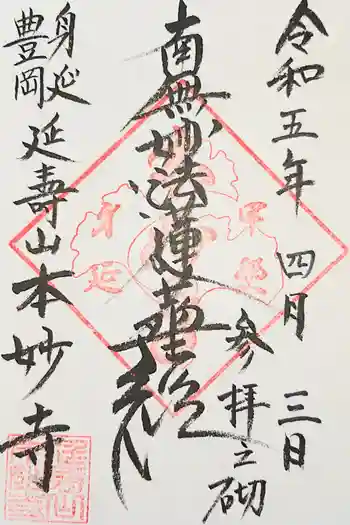 令和五年四月三日
参拝之砌
南無妙法蓮華経
身延
豊岡
延壽山本妙寺
甲州
身延